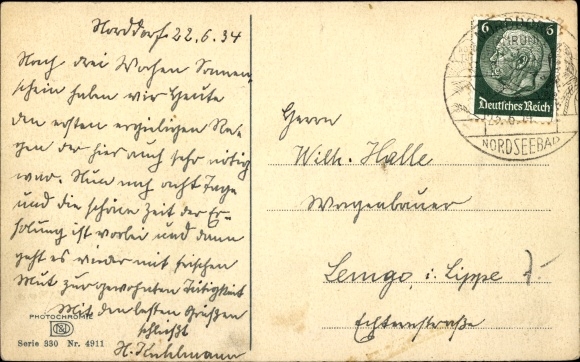 Norddorf 22.6.34
Nach drei Wochen Sonnen-
schein haben wir heute
den ersten ergiebigen Re-
gen der hier auch sehr nötig
war. Nun noch acht Tage
und die schöne Zeit der Er-
holung ist vorbei und dann
geht es wieder mit frischem
Mut zur gewohnten Tätigkeit
Mit den besten Grüßen
schließt
H. Kuhlmann
PHOTOCHROMIE
Serie 330 Nr. 4911
6 6
Deutsches Reich
NORDSEEBAD
Herrn
Wilh. Halle
Wagenbauer
Lemgo i. Lippe
Echternstraße